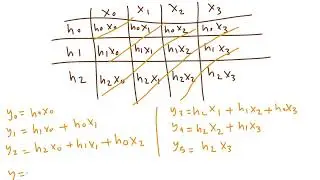 x₀ x₁ x₂ x₃
h₀ h₀x₀ h₀x₁ h₀x₂ h₀x₃
h₁ h₁x₀ h₁x₁ h₁x₂ h₁x₃
h₂ h₂x₀ h₂x₁ h₂x₂ h₂x₃
y₀ = h₀x₀
y₁ = h₁x₀ + h₀x₁
y₂ = h₂x₀ + h₁x₁ + h₀x₂
y =
y₃ = h₂x₁ + h₁x₂ + h₀x₃
y₄ = h₂x₂ + h₁x₃
y₅ = h₂x₃